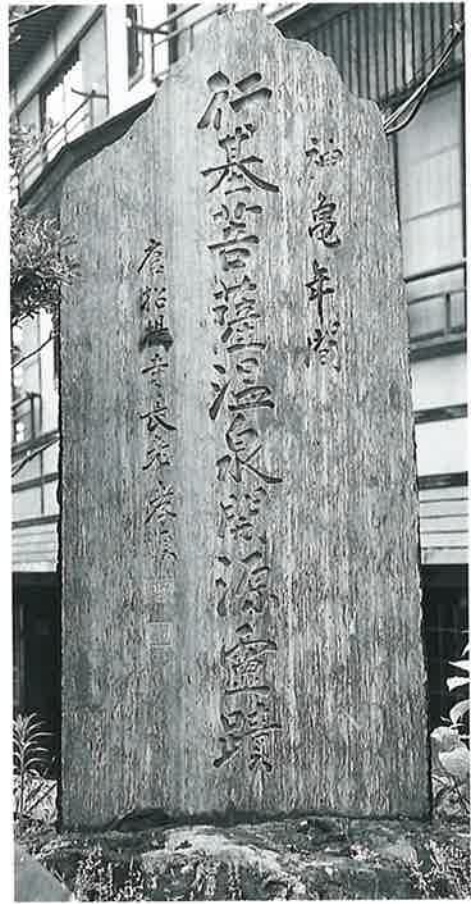 神亀年間
行基菩薩温泉開源霊蹟
唐招提寺長老